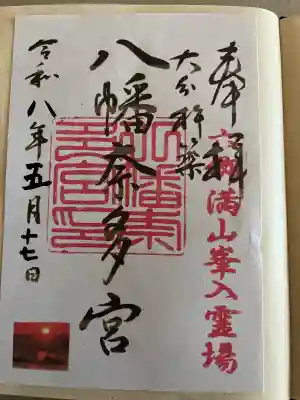 奉拝
六郷満山峯入霊場
大分杵築
八幡奈多宮
令和八年五月十七日